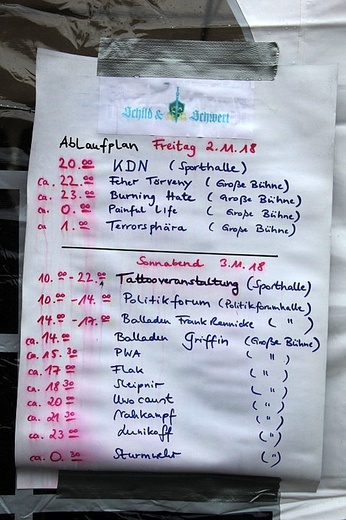 Schild & Schwert
Ablaufplan Freitag 2.11.18
20.00 KDN (Sporthalle)
ca. 22.00 Feher Törveny (Große Bühne)
ca. 23.00 Burning Hate (Große Bühne)
ca. 0.00 Painful Life (Große Bühne)
ca. 1.00 Terrorsphära (Große Bühne)
Sonnabend 3.11.18
10.00 - 22.00 Tattooveranstaltung (Sporthalle)
10.00 - 14.00 Politikforum (Politikforumhalle)
14.00 - 17.00 Balladen Frank Rennicke ( " )
ca. 14.00 Balladen Griffin (Große Bühne)
ca. 15.30 PWA ( " )
ca. 17.00 Flak ( " )
ca. 18.30 Sleipnir ( " )
ca. 20.00 Uwocaust ( " )
ca. 21.30 Nahkampf ( " )
ca. 23.00 Lunikoff ( " )
ca. 0.30 Sturmwehr ( " )